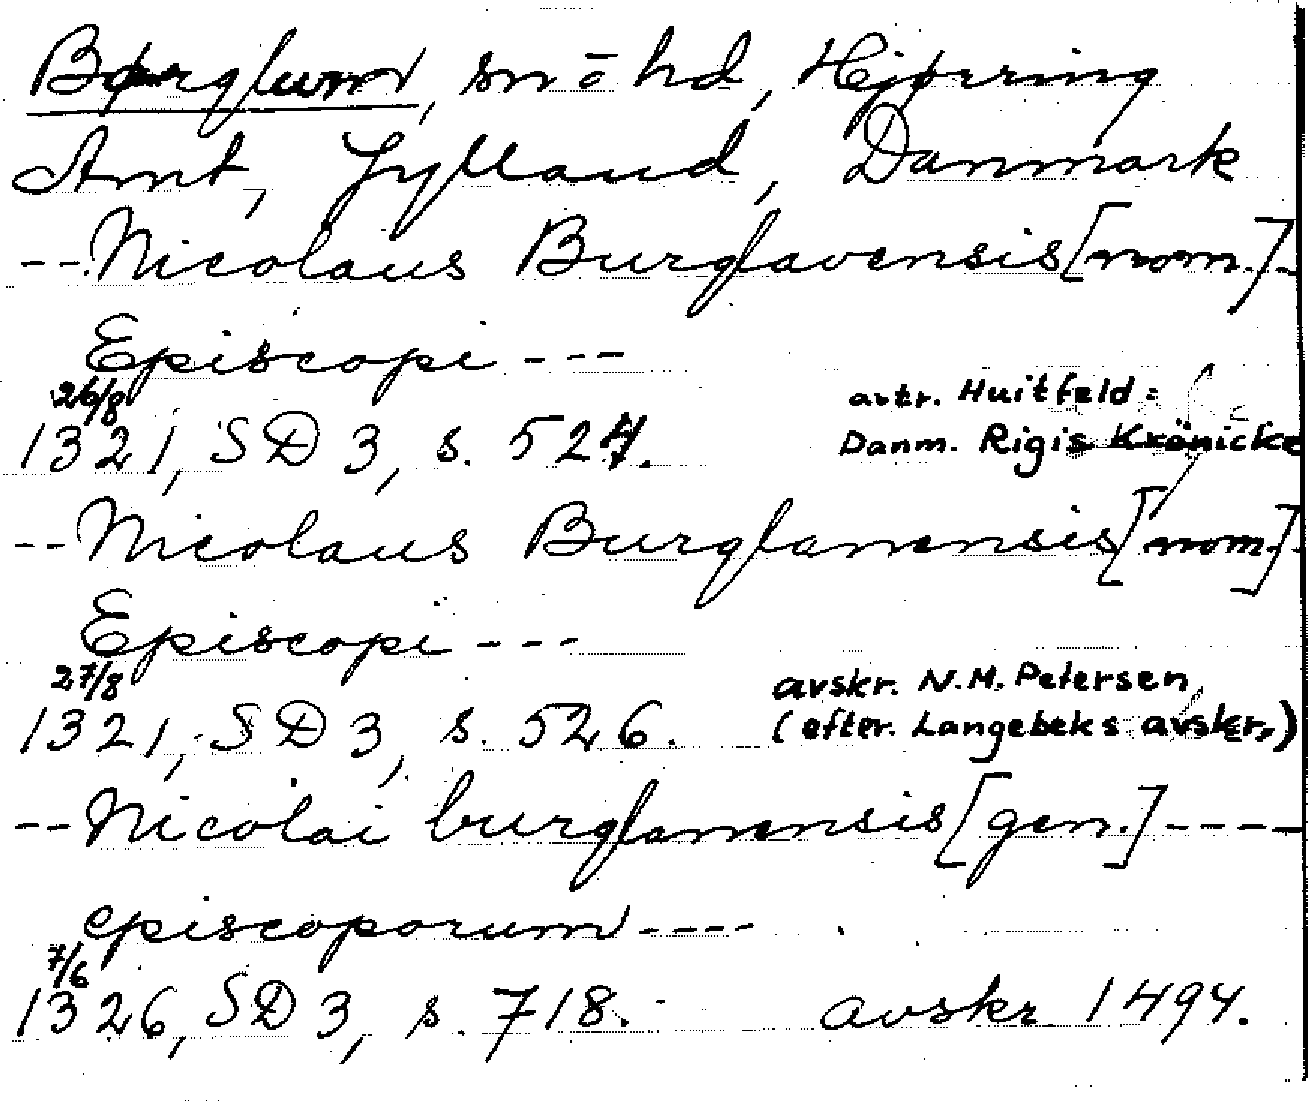 Børglum, sn o hd, Hjørring
Amt, Jylland, Danmark
--Nicolaus Burglavensis [nom.]-
Episcopi ---
26/8
1321, SD 3, s. 524. avtr. Huitfeld:
Danm. Rigis Krönicke
--Nicolaus Burglanensis [nom.]-
Episcopi ---
27/8
1321, SD 3, s. 526. avskr. N.M. Petersen
(efter. Langebeks avskr.)
--Nicolai burglanensis [gen.]----
episcoporum ----
7/6
1326, SD 3, s. 718. avskr 1494.